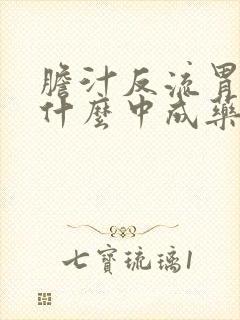 膽汁反流胃
什麼中成藥
七寶琉璃1